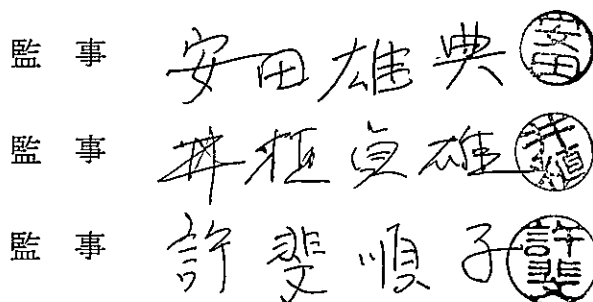 監 事 安田雄典 安田
監 事 井植貞雄 井植
監 事 許斐順子 許斐